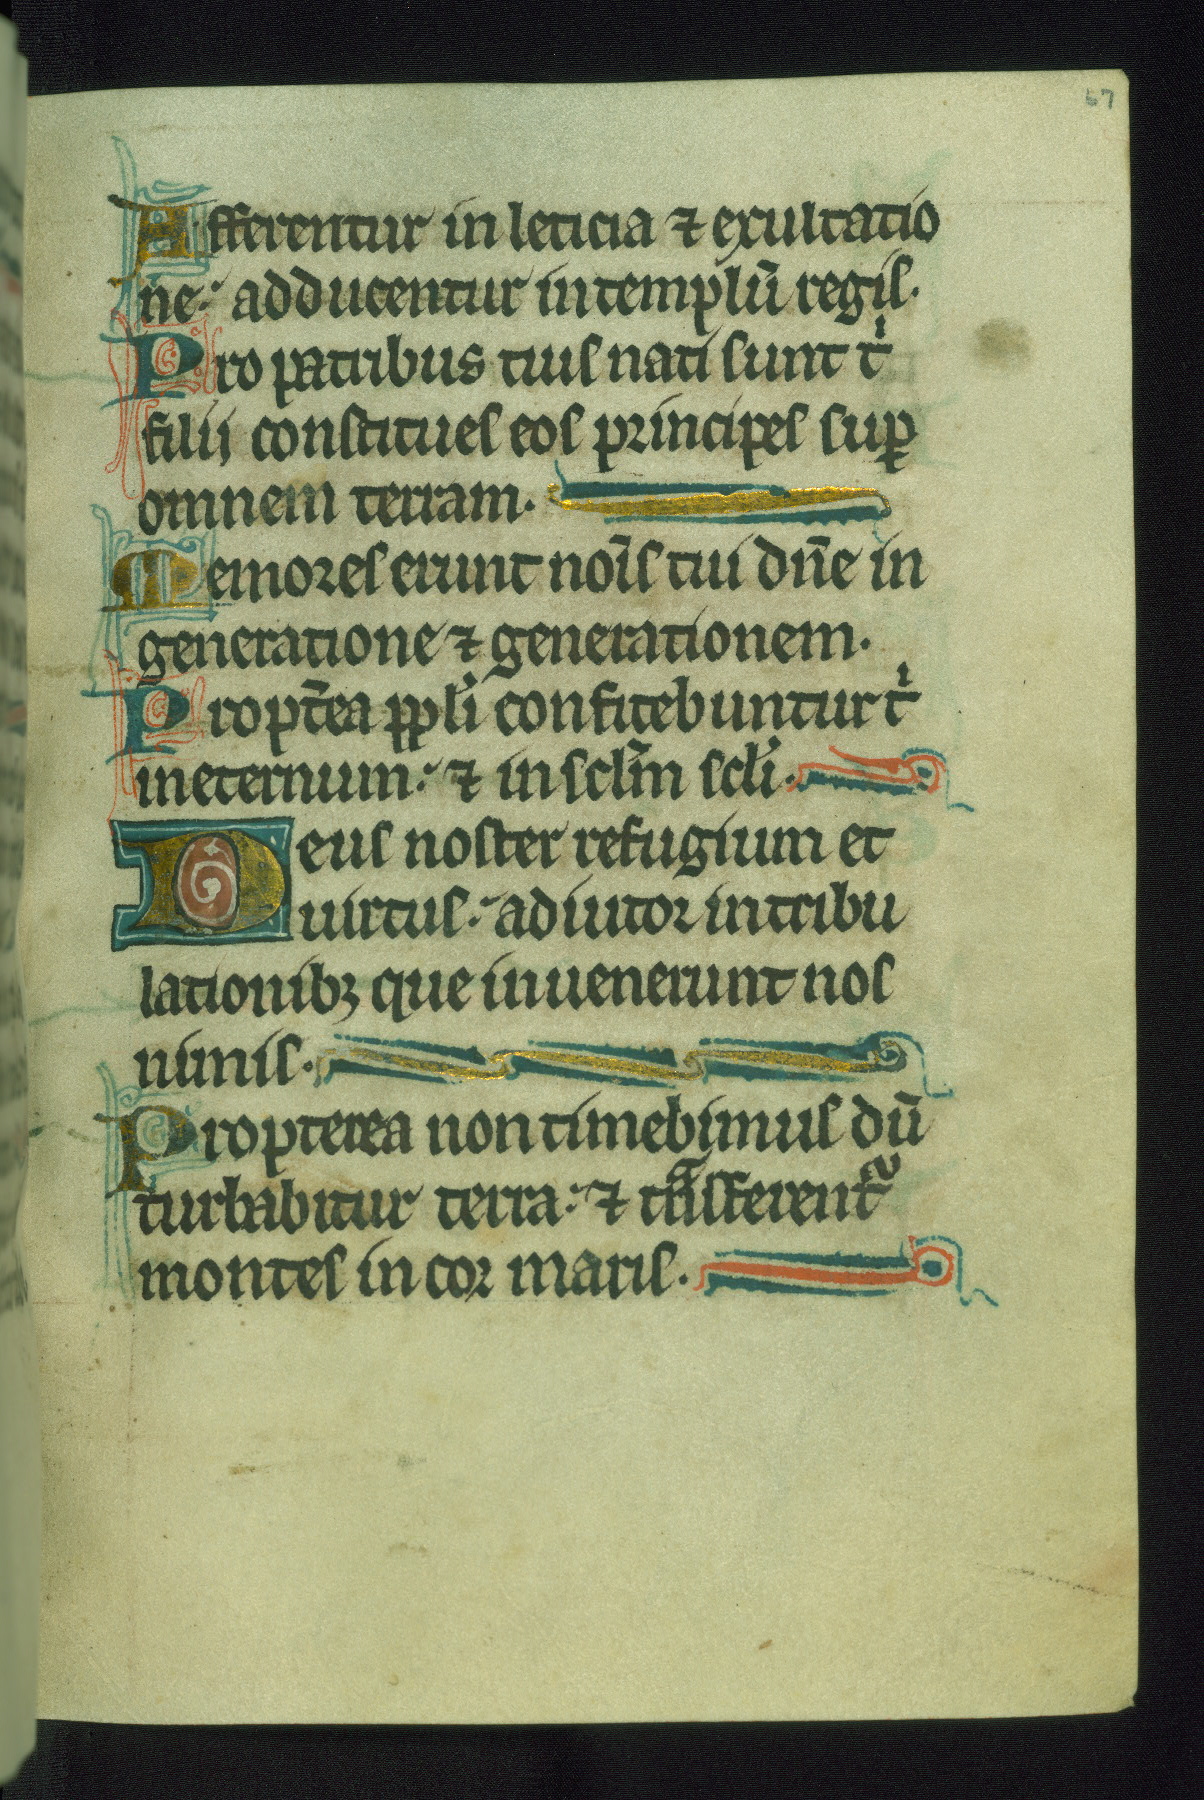 67
Afferentur in leticia ⁊ exultatio
ne: adducentur in templū regis.
Pro patribus tuis nati sunt tⁱ
filii constitues eos principes suꝑ
omnem terram.
Memores erunt noīs tui dn̄e in
generatione ⁊ generationem.
Propt̄ea ppl̄i confitebuntur tⁱ
in eternum: ⁊ in scl̄m scl̄i.
Deus noster refugium et
uirtus: adiutor in tribu
lationibꝫ que inuenerunt nos
nimis.
Propterea non timebimus dū
turbabitur terra: ⁊ tͣnsferentᷣ
montes in cor maris.